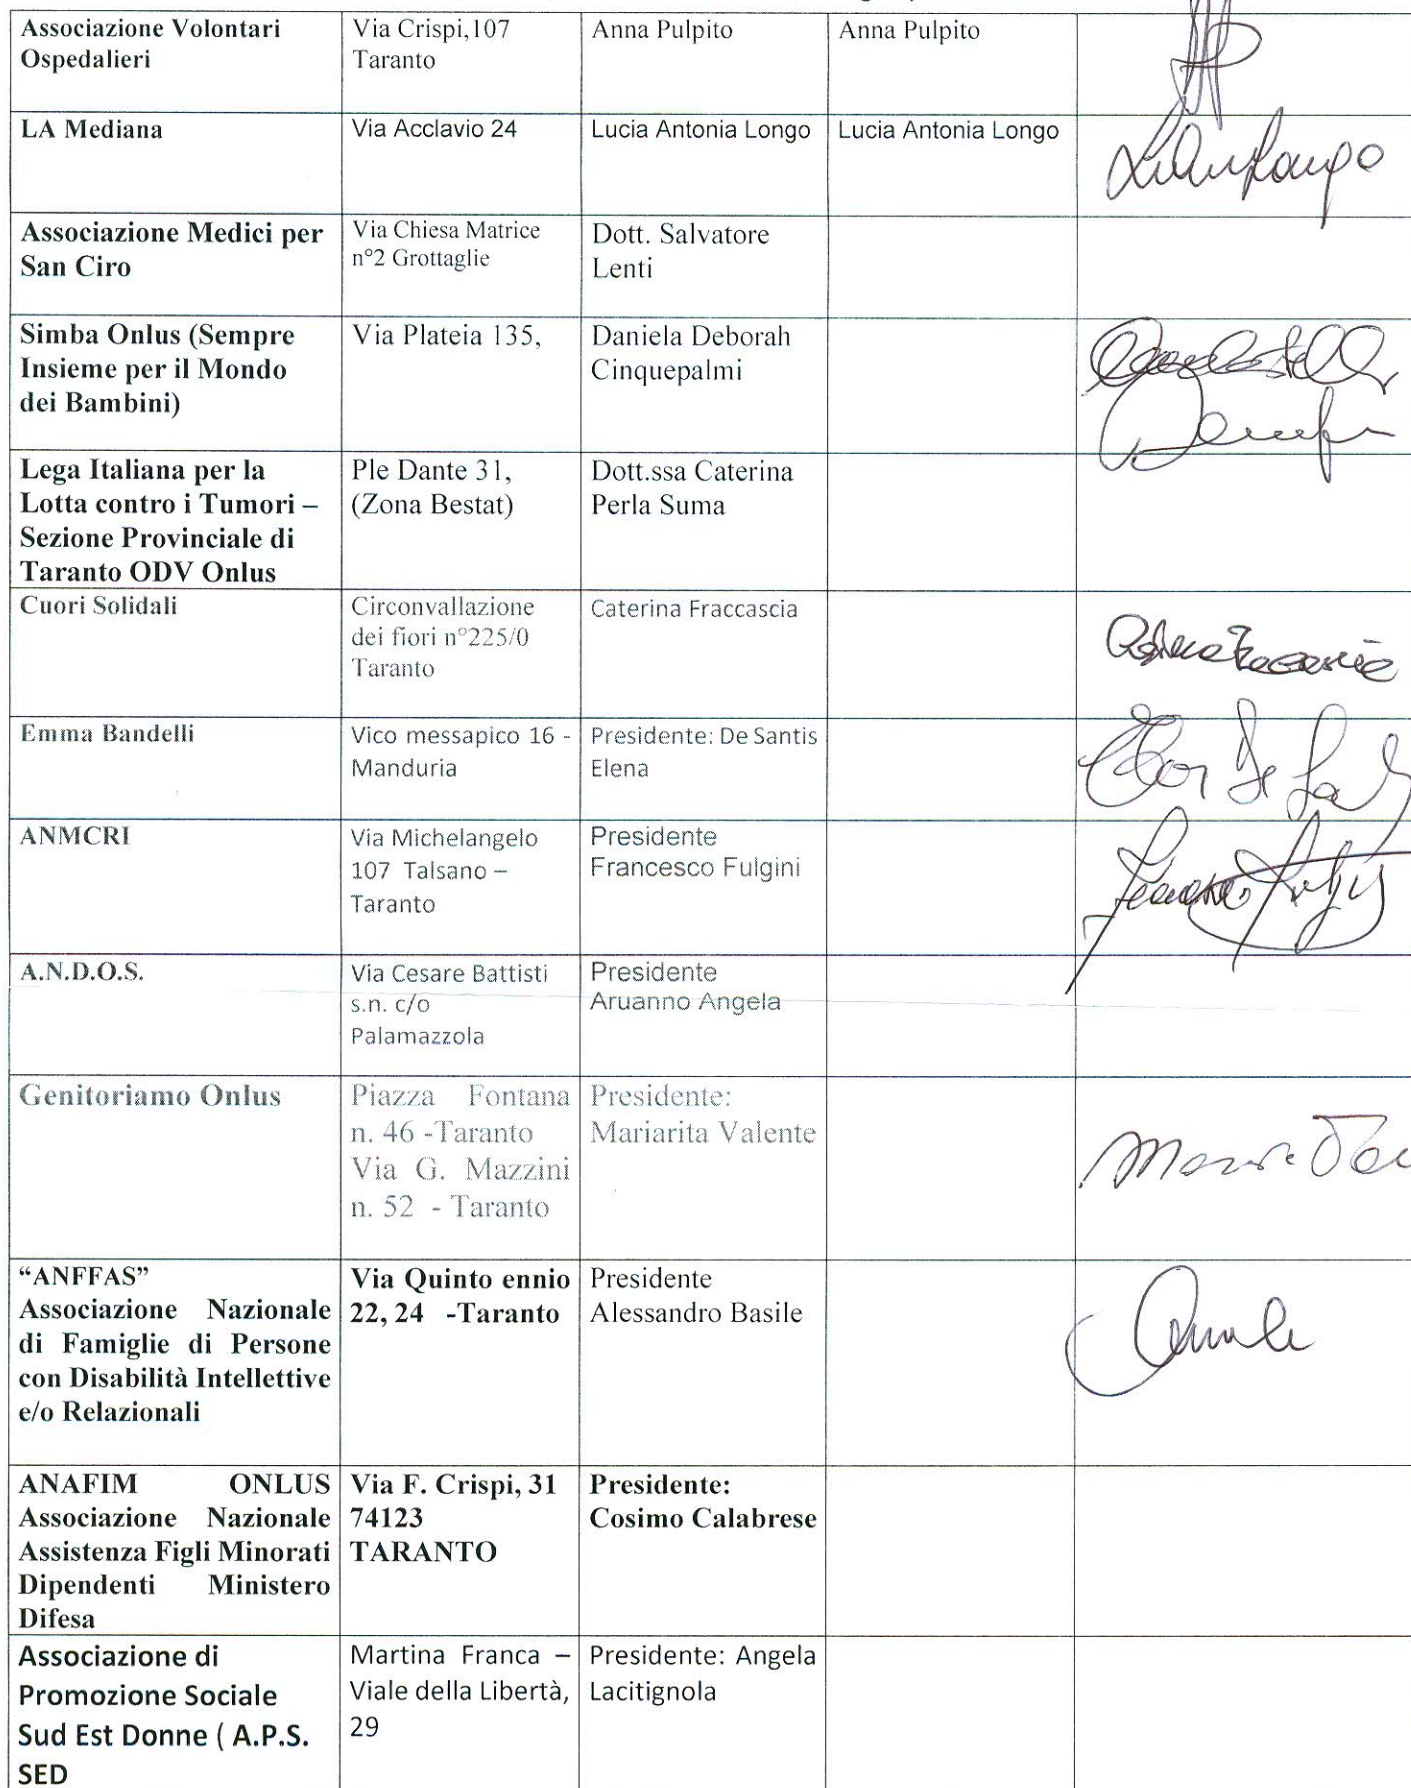 Associazione Volontari
Ospedalieri
Via Crispi,107
Taranto
Anna Pulpito
Anna Pulpito
LA Mediana
Via Acclavio 24
Lucia Antonia Longo
Lucia Antonia Longo
Associazione Medici per
San Ciro
Via Chiesa Matrice
n°2 Grottaglie
Dott. Salvatore
Lenti
Simba Onlus (Sempre
Insieme per il Mondo
dei Bambini)
Via Plateia 135,
Daniela Deborah
Cinquepalmi
Lega Italiana per la
Lotta contro i Tumori –
Sezione Provinciale di
Taranto ODV Onlus
Ple Dante 31,
(Zona Bestat)
Dott.ssa Caterina
Perla Suma
Cuori Solidali
Circonvallazione
dei fiori n°225/0
Taranto
Caterina Fraccascia
Emma Bandelli
Vico messapico 16 -
Manduria
Presidente: De Santis
Elena
ANMCRI
Via Michelangelo
107 Talsano –
Taranto
Presidente
Francesco Fulgini
A.N.D.O.S.
Via Cesare Battisti
s.n. c/o
Palamazzola
Presidente
Aruanno Angela
Genitoriamo Onlus
Piazza Fontana
n. 46 -Taranto
Via G. Mazzini
n. 52 - Taranto
Presidente:
Mariarita Valente
“ANFFAS”
Associazione Nazionale
di Famiglie di Persone
con Disabilità Intellettive
e/o Relazionali
Via Quinto ennio
22, 24 -Taranto
Presidente
Alessandro Basile
ANAFIM ONLUS
Associazione Nazionale
Assistenza Figli Minorati
Dipendenti Ministero
Difesa
Via F. Crispi, 31
74123
TARANTO
Presidente:
Cosimo Calabrese
Associazione di
Promozione Sociale
Sud Est Donne ( A.P.S.
SED
Martina Franca –
Viale della Libertà,
29
Presidente: Angela
Lacitignola